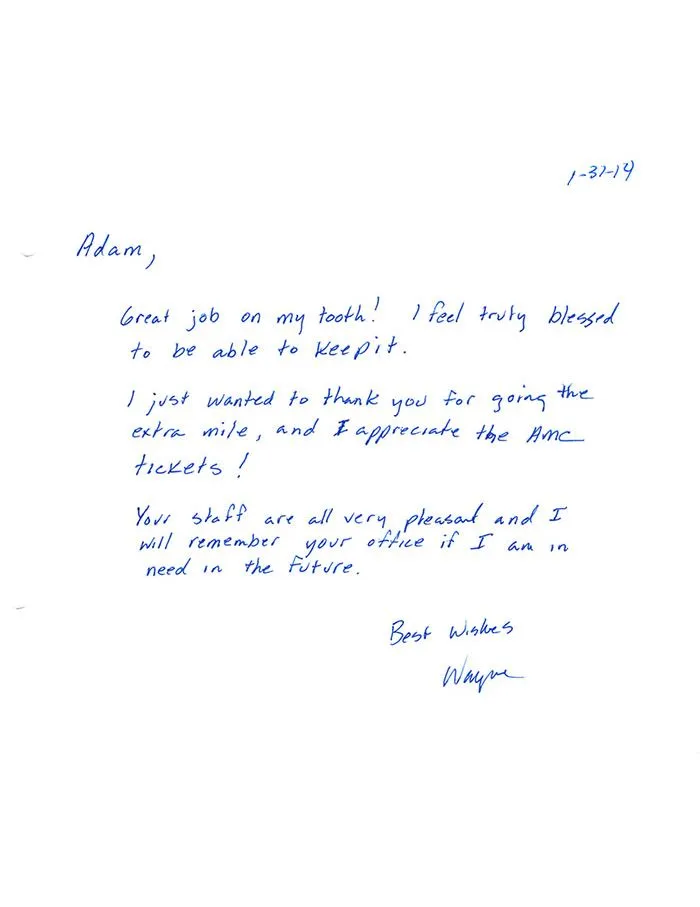 1-31-14
Adam,
Great job on my tooth! I feel truly blessed
to be able to keep it.
I just wanted to thank you for going the
extra mile, and I appreciate the AMC
tickets!
Your staff are all very pleasant and I
will remember your office if I am in
need in the future.
Best Wishes
Wayne